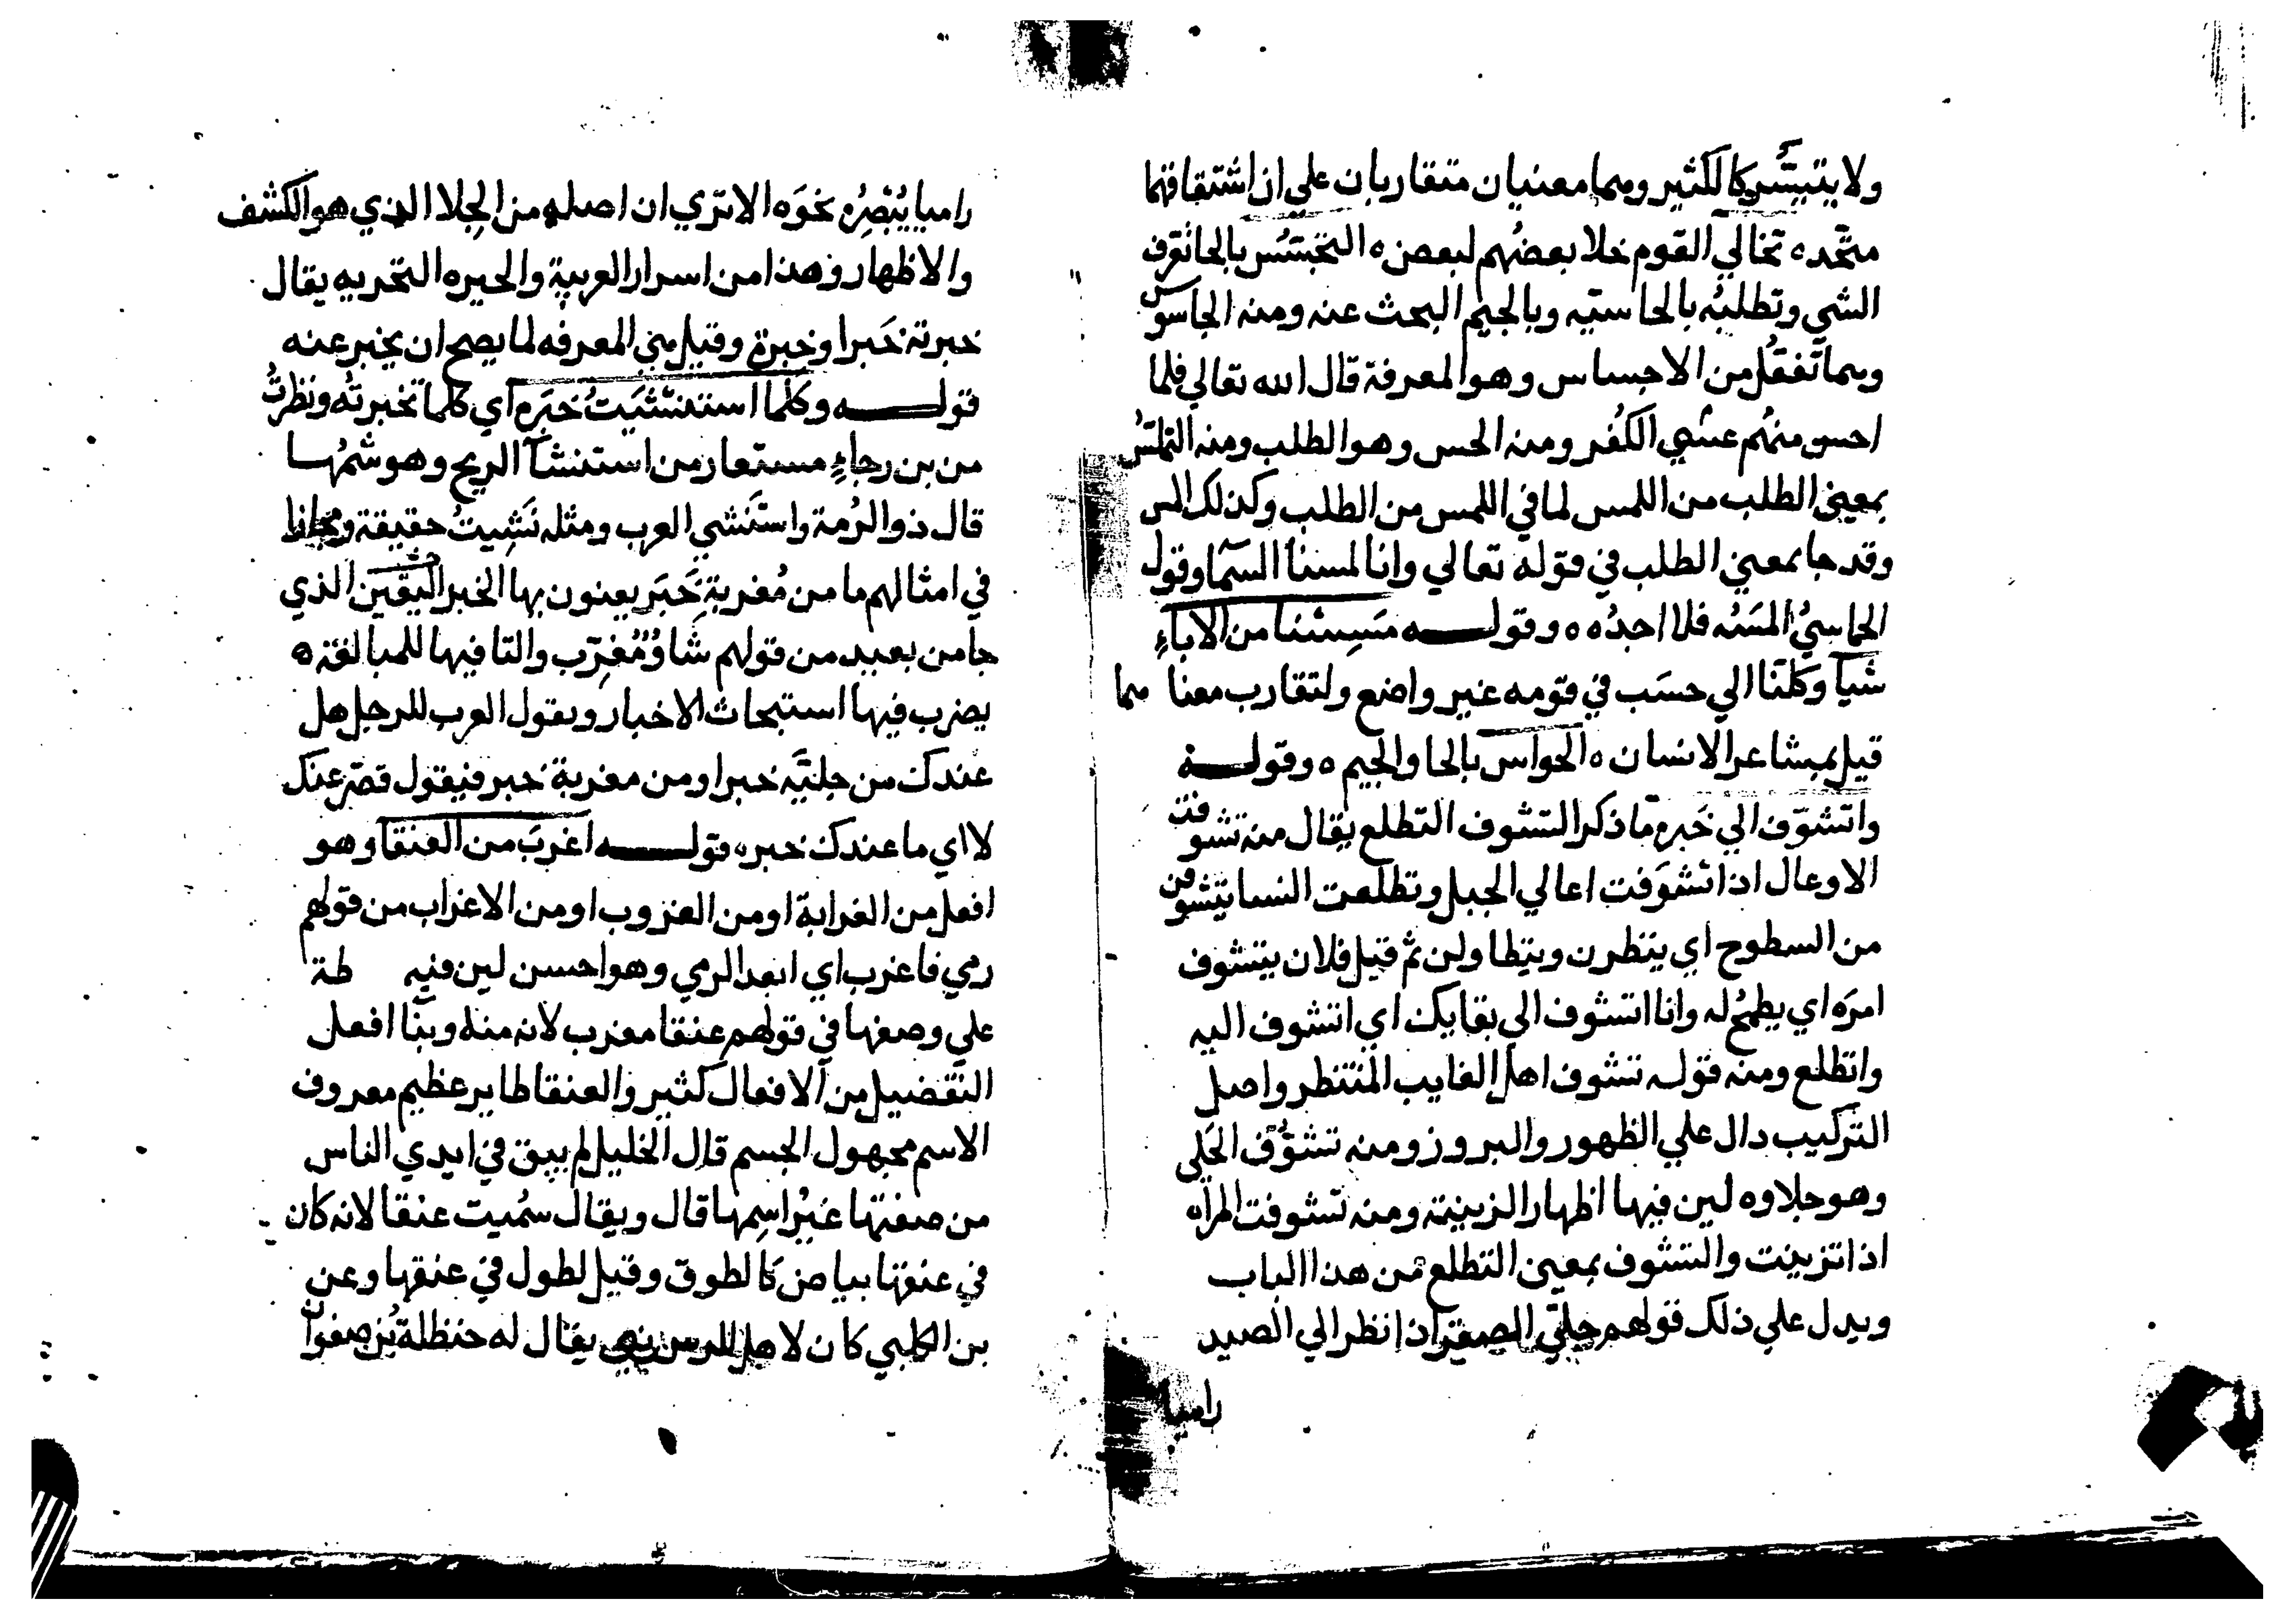 ولا يتيسر كا لكثير وهما معنيان متقاربان علي ان اشتقاقهما
متحده تخالي القوم خلا بعضهم لبعض ه التحسس بالحا تعرف
الشي وتطلبه بالحاسيه وبالجيم البحث عنه ومنه الجاسوس
وهما تفعل من الاحساس وهو المعرفة قال الله تعالي فلما
احس منهم عيسي الكفر ومنه الحس وهو الطلب ومنه التلمس
بمعني الطلب من اللمس لما في اللمس من الطلب وكذلك المس
وقد جا بمعني الطلب في قوله تعالي وانا لمسنا السما وقول
الحماسي المسه فلا اجده ه ه وقولـــه مسسنا من الاباء
شيا وكلنا الي حسب في قومه غير واضع ولتقارب معنا هما
قيل لمشاعر الانسان ه الحواس بالحا والجيم ه وقولـــه
واتشوف الي خبره ما ذكر التشوف التطلع يقال منه تشوفت
الاوعال اذا تشوفت اعالي الجبل وتطلعت النسا يتشوفن
من السطوح اي ينظرن ويتطا ولن ثم قيل فلان يتشوف
امره اي يطمح له وانا اتشوف الي بقايك اي اتشوف اليه
واتطلع ومنه قوله تشوف اهل الغايب المنتظر واصل
التركيب دال علي الظهور والبروز ومنه تشوف الحلي
وهو جلاوه لين فيها اظهار الزينة ومنه تشوفت المراه
اذا تزينت والتشوف بمعني التطلع من هذا الباب
ويدل علي ذلك قولهم جلي الصقر اذا نظر الي الصيد
راميا
راميا يبصره نحوه الا تري ان اصله من الجلا الذي هو الكشف
والاظهار وهذا من اسرار العربية والخبره التجربه يقال
خبرته خبرا وخبرة وقيل هي المعرفه لما يصح ان يخبر عنه
قولـــه وكلما استنشيت خبره اي كلما تخبرته ونظرت
من بن رجاء مستعار من استنشا الريح وهو شمها
قال ذو الرمة واستنشي العرب ومثله نشيت حقيقة ومجازا
في امثالهم ما من مغربة خبر يعنون بها الخبر اليقين الذي
جا من بعيد من قولهم شاو مغرب والتا فيها للمبالغة ه
يضرب فيها استبحاث الاخبار ويقول العرب للرجل هل
عندك من جلية خبرا ومن مغربة خبر فيقول قصر عنك
لا اي ما عندك خبره قولـــه اغرب من العنقا وهو
افعل من الغرابة او من الغروب او من الاغراب من قولهم
رمي فاغرب اي ابعد الرمي وهو احسن لين فيه طة
علي وصفها في قولهم عنقا مغرب لانه منه وبنا افعل
التفضيل من الافعال كثير والعنقا طاير عظيم معروف
الاسم مجهول الجسم قال الخليل لم يبق في ايدي الناس
من صفتها غير اسمها قال ويقال سميت عنقا لانه كان
في عنقها بياض كا لطوق وقيل لطول في عنقها وعن
بن الكلبي كان لاهل الرس نبي يقال له حنظلة بن صفوان